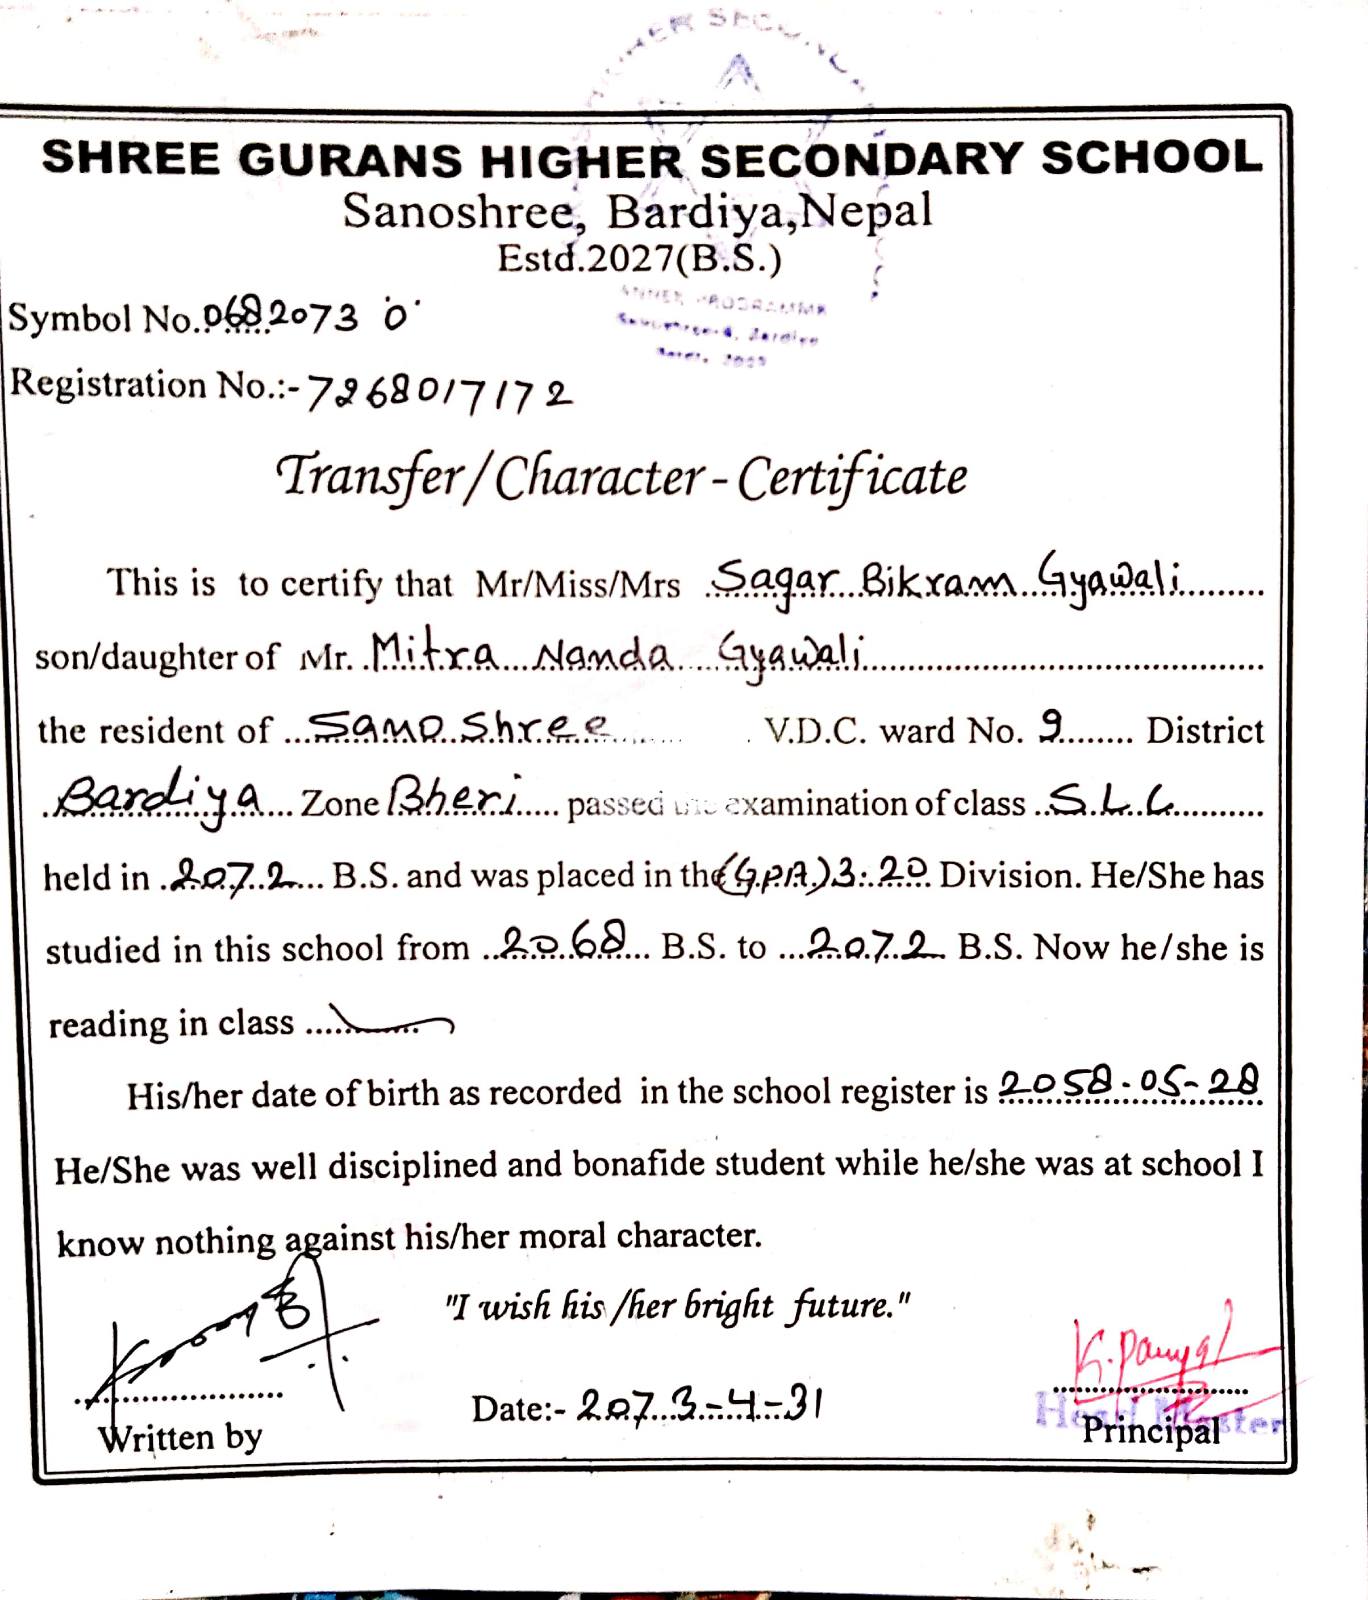 HIGHER SECONDARY
SHREE GURANS HIGHER SECONDARY SCHOOL
Sanoshree, Bardiya,Nepal
Estd.2027(B.S.)
Symbol No.0682073 'O'
Registration No.:- 7268017172
Transfer/Character - Certificate
This is to certify that Mr/Miss/Mrs Sagar Bikram Gyawali
son/daughter of Mr. Mitra Nanda Gyawali
the resident of Sano Shree V.D.C. ward No. 9 District
Bardiya Zone Bheri passed the examination of class S.L.C
held in 2072 B.S. and was placed in the (G.P.A.) 3.20 Division. He/She has
studied in this school from 2068 B.S. to 2072 B.S. Now he/she is
reading in class
His/her date of birth as recorded in the school register is 2058-05-28
He/She was well disciplined and bonafide student while he/she was at school I
know nothing against his/her moral character.
"I wish his /her bright future."
K. Panyal
Date:- 2073-4-31
Head Master
Written by
Principal